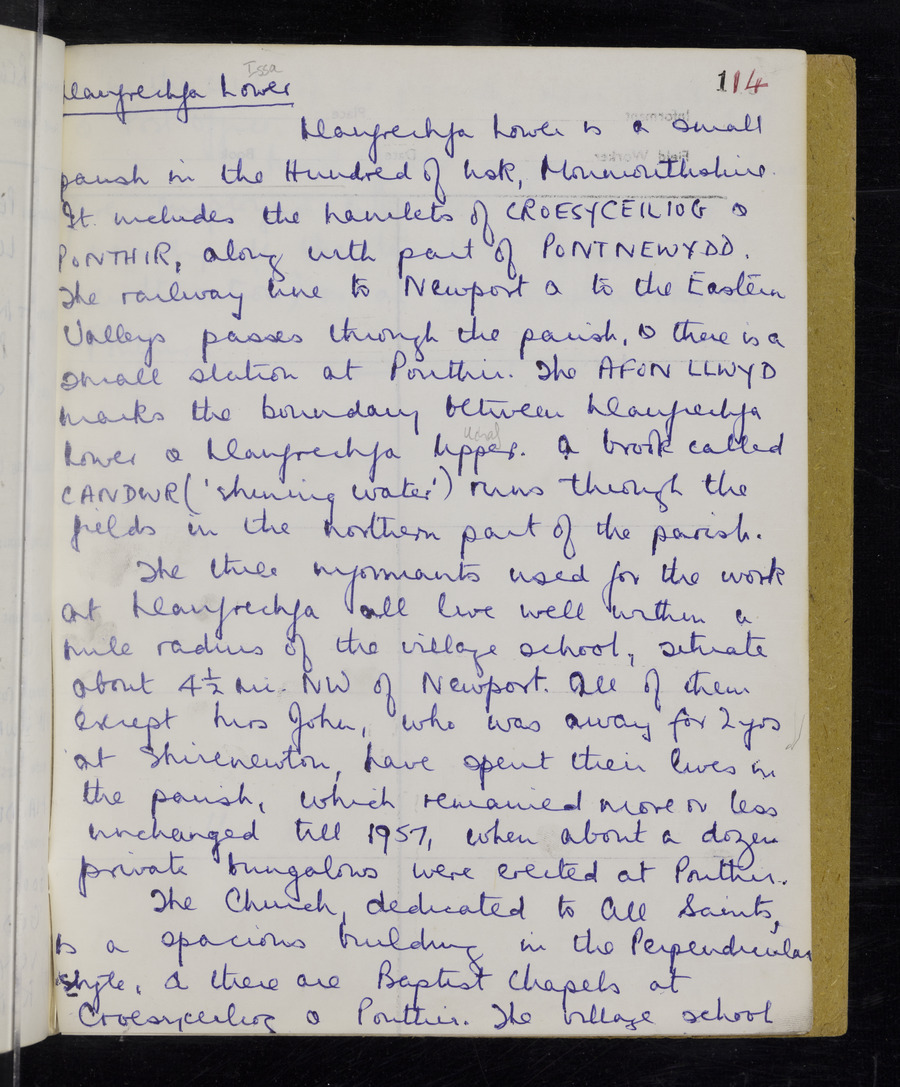 Issa
Llanfrechfa Lower
114
Llanfrechfa Lower is a small
parish in the Hundred of Usk, Monmouthshire.
It includes the hamlets of CROESYCEILIOG &
PONTHIR, along with part of PONTNEWYDD.
The railway line to Newport & to the Eastern
Valleys passes through the parish, & there is a
small station at Ponthir. The AFON LLWYD
marks the boundary between Llanfrechfa
Lower & Llanfrechfa Upper. A brook called
CANDWR ('shining water') runs through the
fields in the northern part of the parish.
The three informants used for the work
at Llanfrechfa all live well within a
mile radius of the village school, situate
about 4½ mi. NW of Newport. All of them
except Mrs John, who was away for 2 yrs
at Shirenewton, have spent their lives in
the parish, which remained more or less
unchanged till 1957, when about a dozen
private bungalows were erected at Ponthir.
The Church, dedicated to All Saints,
is a spacious building in the Perpendicular
style, & there are Baptist Chapels at
Croesyceiliog & Ponthir. The village school